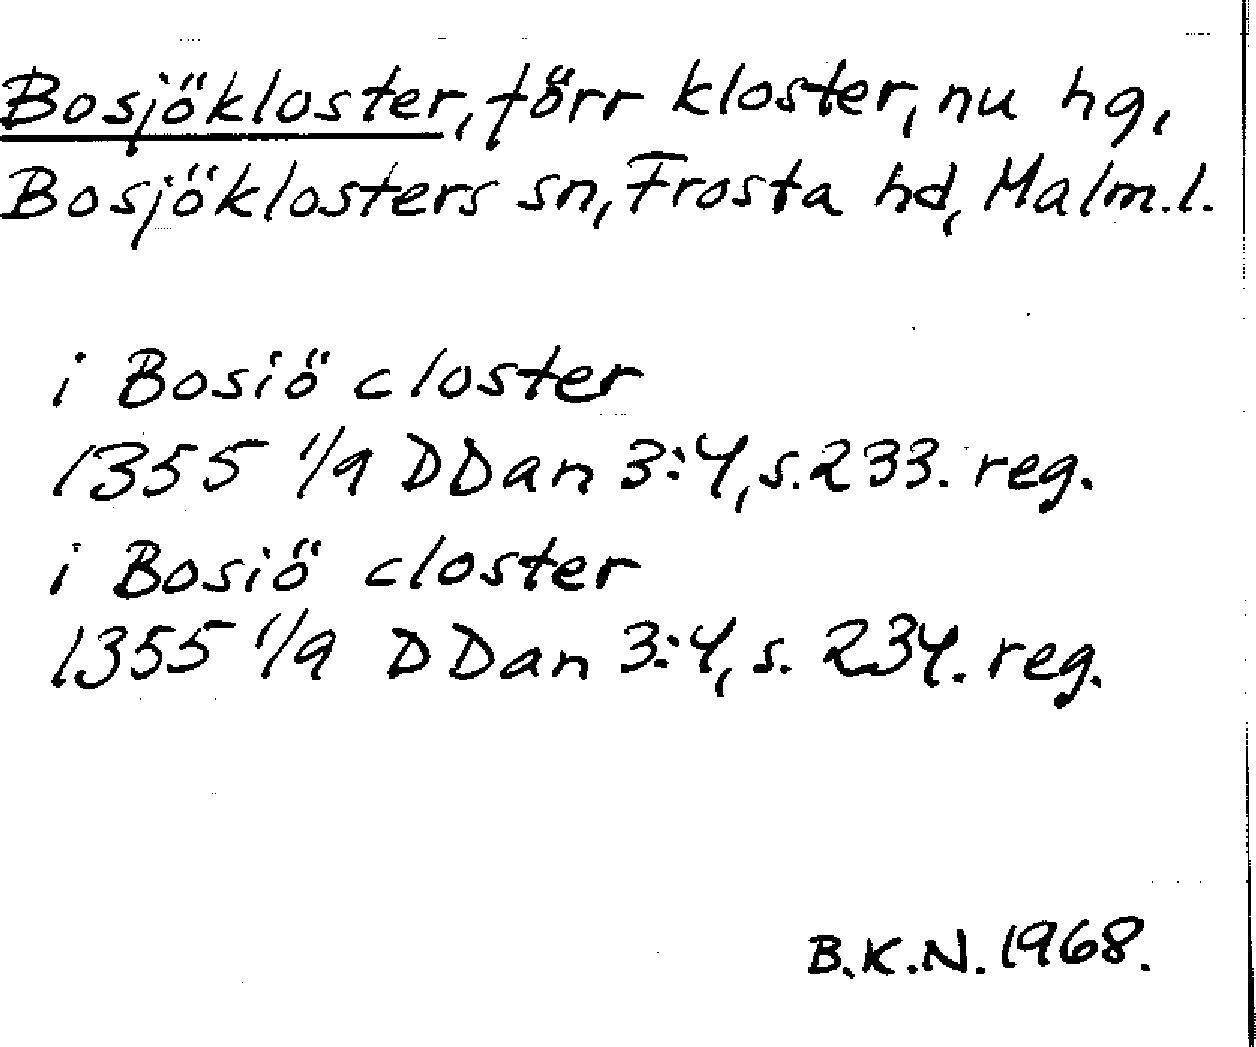 Bosjökloster, förr kloster, nu hg,
Bosjöklosters sn, Frosta hd, Malm.l.
i Bosiö closter
1355 1/9 DDan 3:4, s. 233. reg.
i Bosiö closter
1355 1/9 DDan 3:4, s. 234. reg.
B.K.N. 1968.